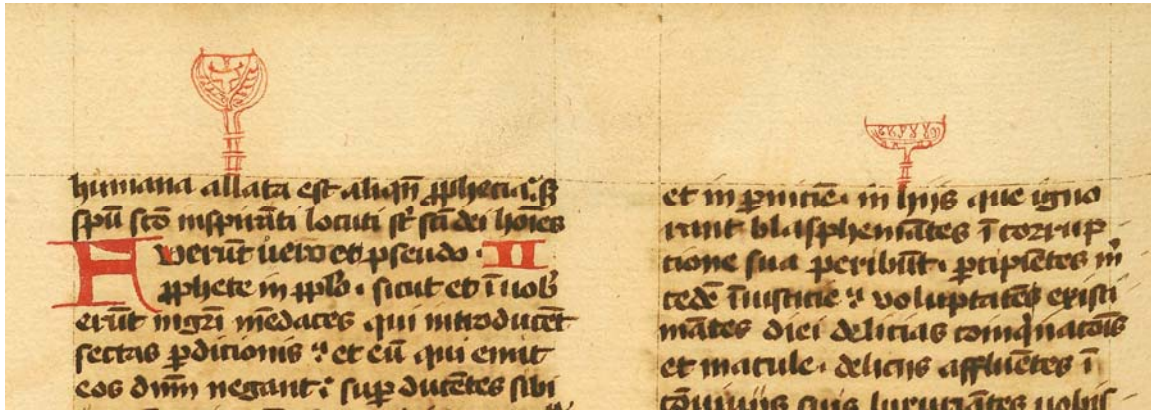 humana allata est aliqñ ꝓphecia. sꝫ
spū sc̄o inspirāti locuti sr̄ sc̄i dei hoīes
Fuerūt ūero et pseudo · II
ꝓphete in ꝓplō · sicut et ī uob̾
erūt mgr̄i mēdaces qui introducēt
sectas ꝑdicionis · et eū qui emit
eos dn̄m negant · suꝑ ducētes sibi
et in ꝑnitiē · in hijs que igno
rant blasphemātes ī corrup
tione sua peribūt · ꝑcipiētes m̾
cedē īiusticie · voluptatē existi
mātes diei delicias coinq̇natōis
et macule · deliciis affluētes ī
cōuiuijs suis luxuriātes uobis